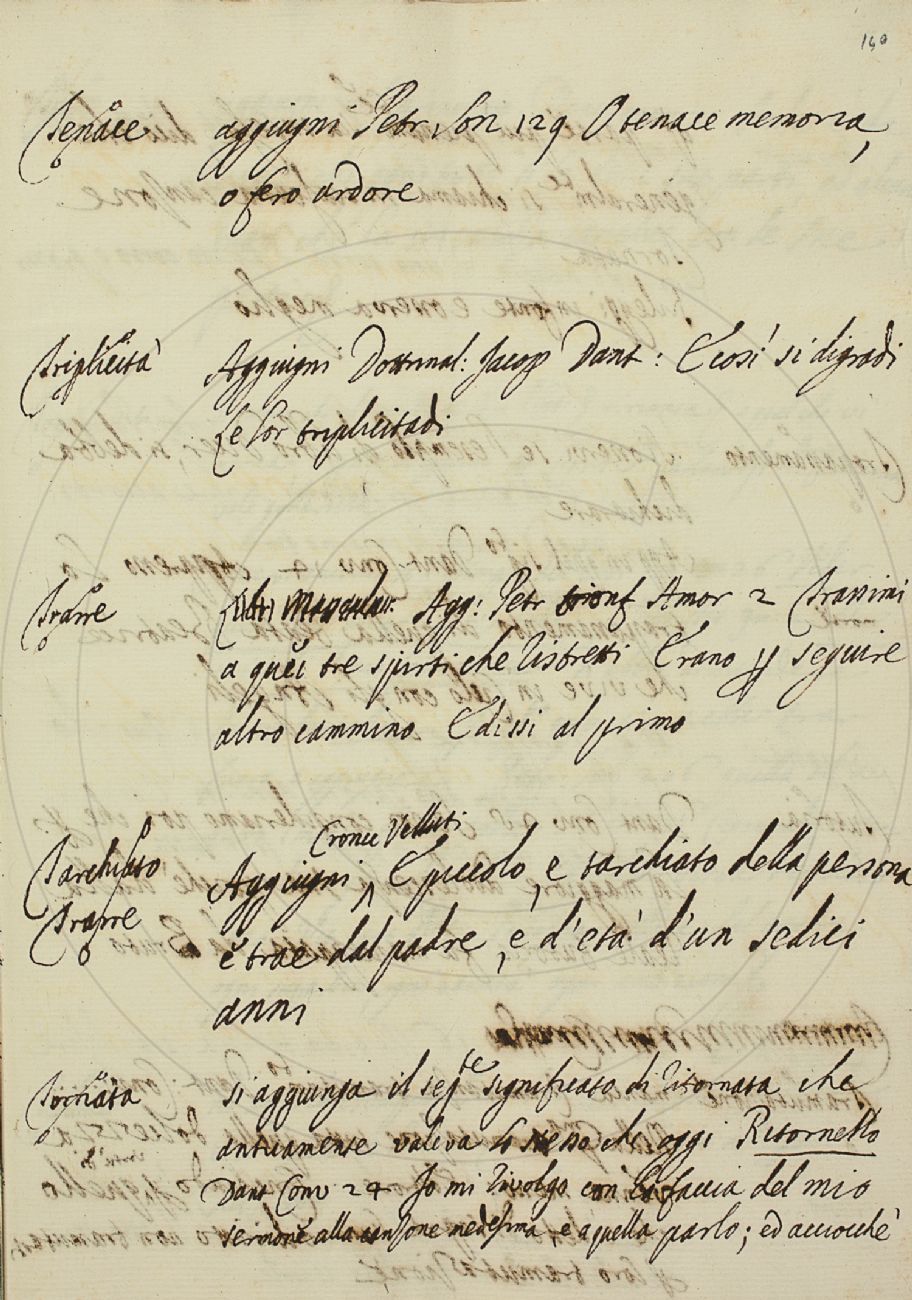 140
Tenace aggiugni Petr. Son 129 O tenace memoria,
o fero ardore
Triplicità Aggiugni Dottrinal: Jacop Dant: E così si digradi
Le lor triplicitadi
Trarre Agg: Petr trionf Amor 2 Trassimi
a quei tre spirti che ristretti Erano p seguire
altro cammino E dissi al primo
Cronic Velluti
Tarchiato Aggiugni ^ E piccolo, e tarchiato della persona
Trarre e trae dal padre, e d'età d'un sedici
anni
Tornata si aggiunga il segte significato di Ritornata che
anticamente valeva lo stesso che oggi Ritornello
Dant Conv 24 Io mi rivolgo con la faccia del mio
sermone alla canzone medesima, e a quella parlo; ed acciocchè